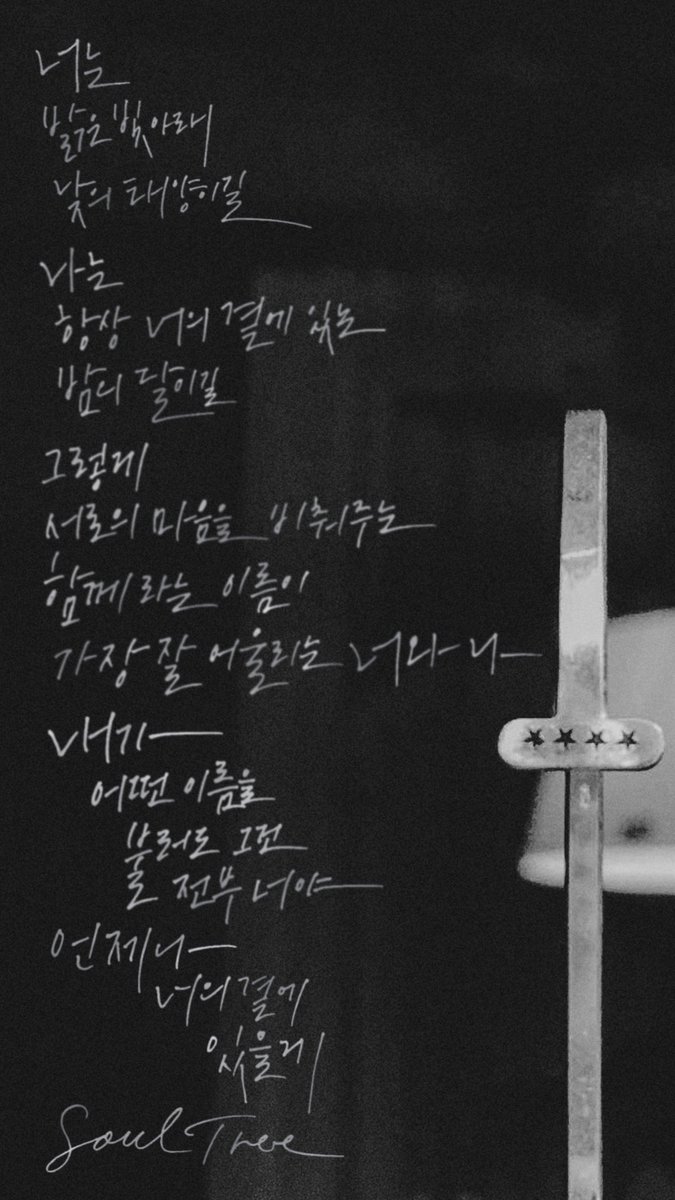 너는
밝은 빛 아래
낮의 태양이길
나는
항상 너의 곁에 있는
밤의 달이길
그렇게
서로의 마음을 비춰주는
함께라는 이름이
가장 잘 어울리는 너와 나
내가
어떤 이름을
불러도 그건
전부 너야
언제나
너의 곁에
있을게
Soul Tree